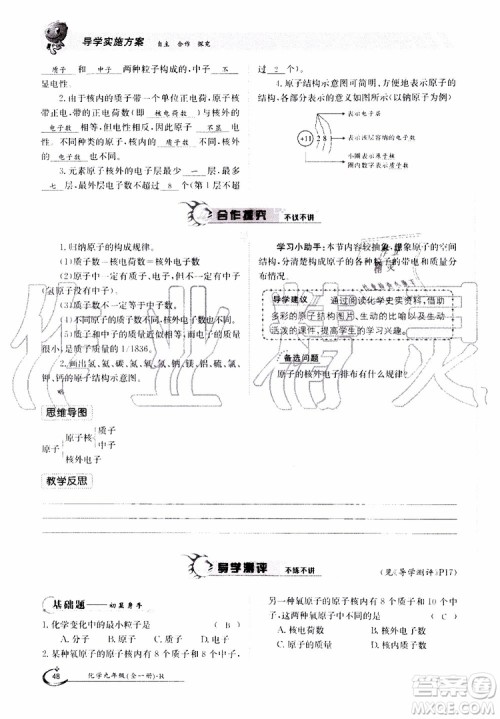 导学实施方案 自主 合作 探究
质子 和 中子 两种粒子构成的,中子 不
显电性。
2.由于核内的质子带一个单位正电荷,原子核
带正电,带正电荷数(即 核电荷数 )和核外带负
电的 电子数 相等,因此整个原子 不显 电
性。不同种类的原子,核内的 质子数 不同,核外
的 电子数 也不同。
3.元素原子核外电子层最少有 一 层,最多
七 层,最外层电子数不超过 8 个(第1层不超
过 2 个)。
4.原子结构示意图可简明、方便地表示原子的
结构,各部分意义如下图所示(以钠原子为例)
表示电子层
+11 2 8 1
表示该层容纳的电子数
小圈表示原子核
圈内数字表示质子数
合作探究 不议不讲
1.归纳原子的构成规律。
(1)质子数=核电荷数=核外电子数
(2)质子数不一定等于中子数。
(3)有的原子可能不含中子
(氢原子)。
(4)不同的原子质子数不同。
(5)质子的质量≈中子的质量
=电子质量的1/1836。
2.画出氢、碳、氮、氧、钠、镁、铝、硫、氯、
钾、钙的原子结构示意图。
学习小助手:本节内容较抽象,想象原子的空间
结构,分清楚构成原子的各种粒子的带电和数量关
系。
导学建议 通过阅读化学史实资料,借助
多彩的原子结构图片、生动的比喻以及生动
活泼的课件,提高学生的学习兴趣。
备选问题
原子的核外电子排布有什么规律?
思维导图
原子 原子核 质子
中子
核外电子
教学反思
导学测评 不练不讲
(见《导学测评》P17)
基础题——初显身手
1.化学变化中的最小粒子是 ( B )
A.分子 B.原子 C.质子 D.电子
2.某一种氧原子的原子核内有8个质子和8个中子,
另一种氧原子的原子核内有8个质子和10个中子,
它们相同的是 ( C )
A.核电荷数 B.质子数
C.中子数 D.电子数
48 化学九年级(全一册)·R
作业精灵